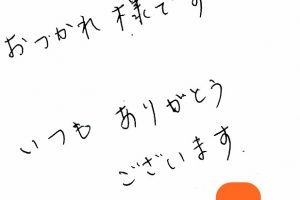 おつかれ様です
いつも ありがとう
ございます.